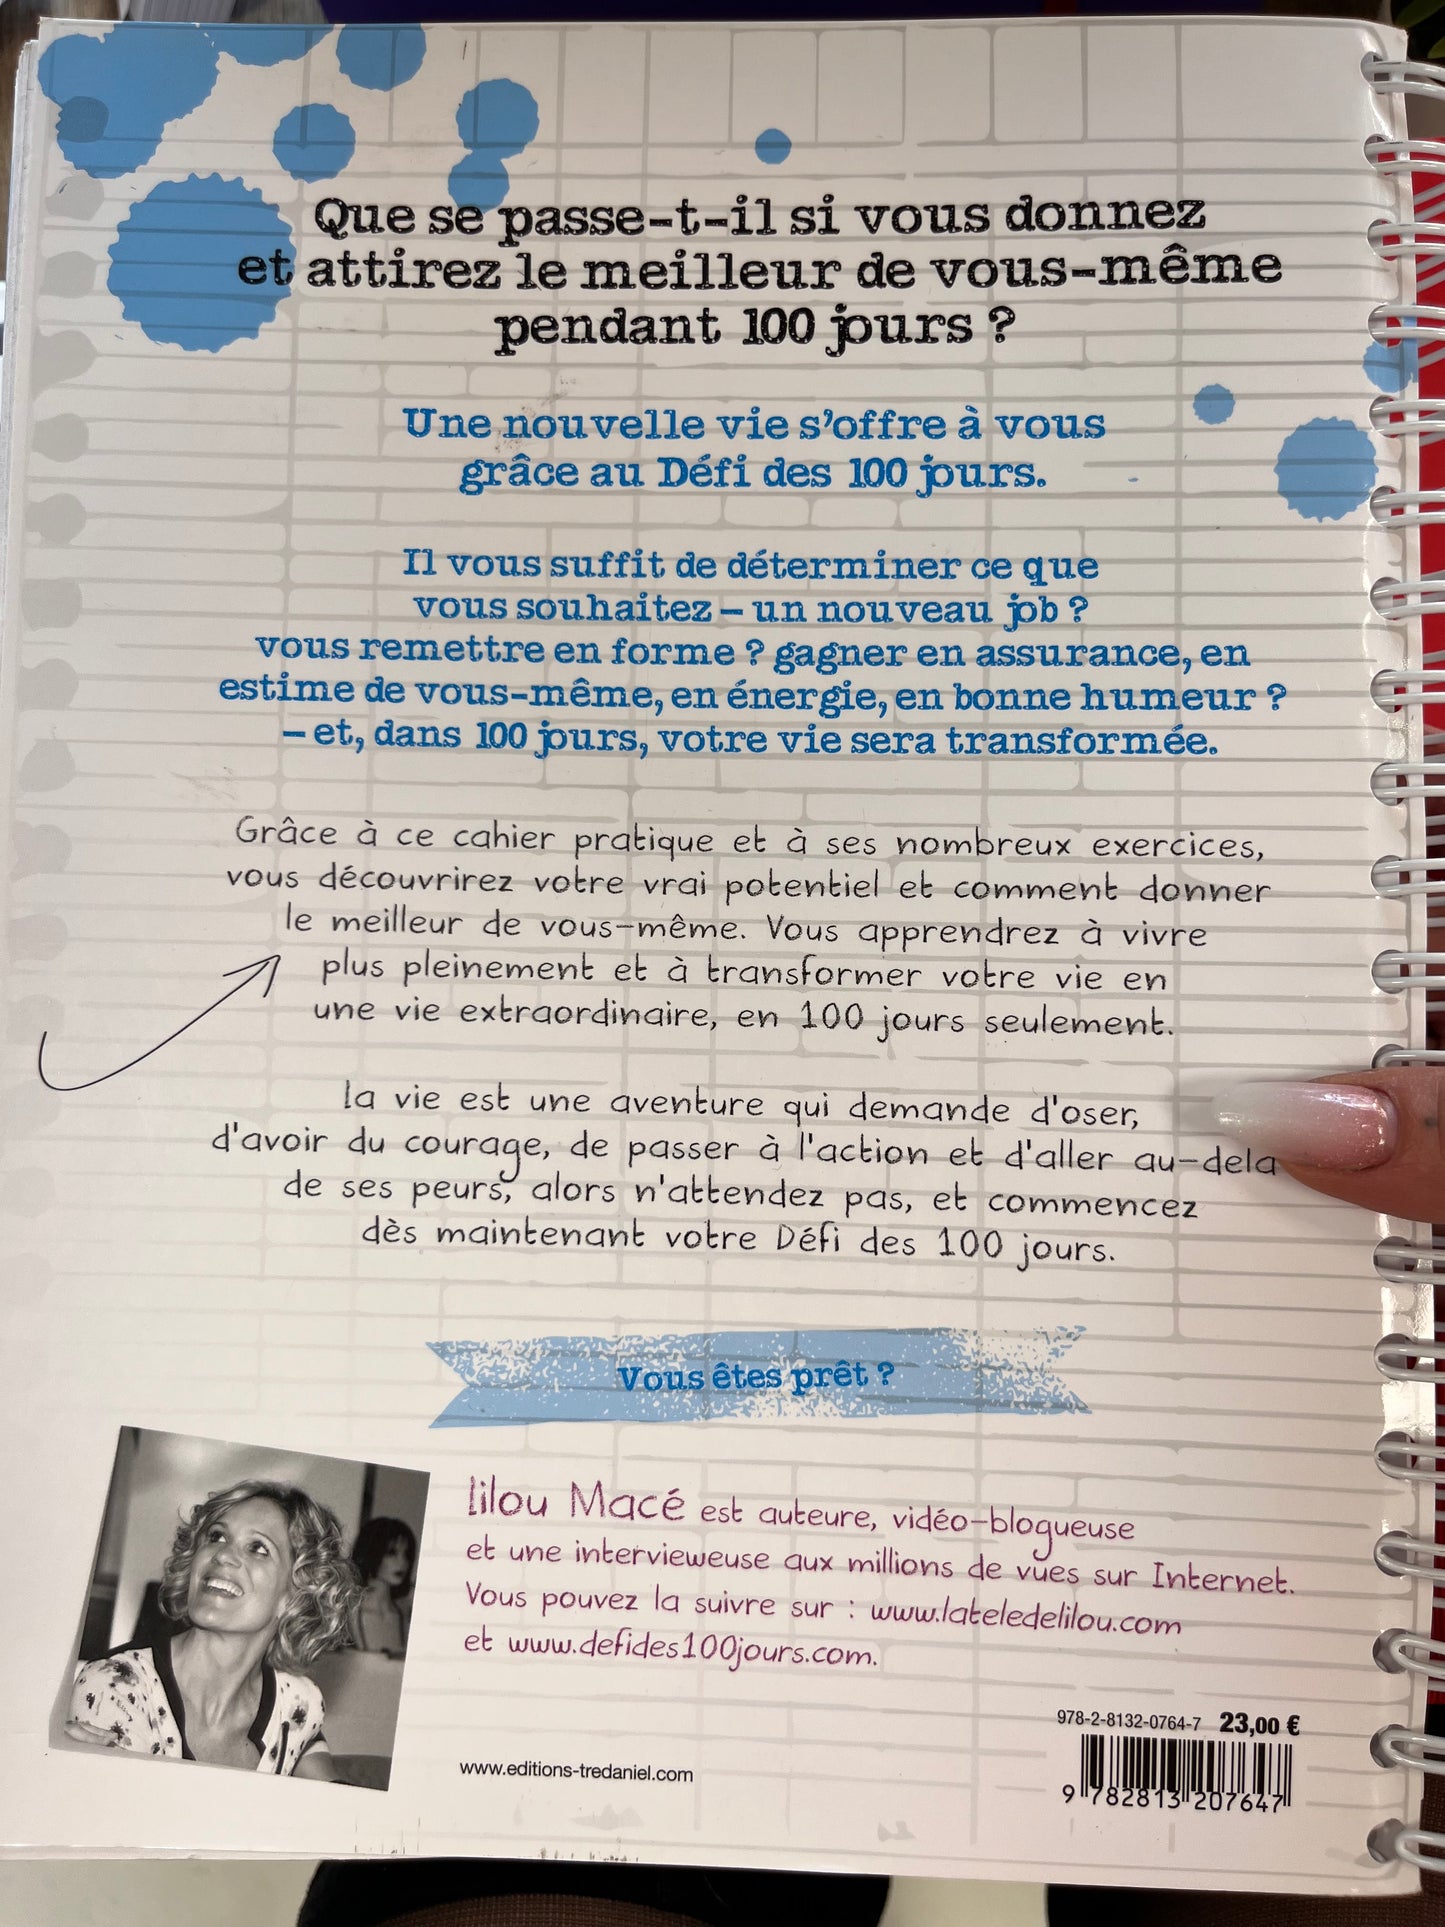 Que se passe-t-il si vous donnez
et attirez le meilleur de vous-même
pendant 100 jours ?
Une nouvelle vie s'offre à vous
grâce au Défi des 100 jours.
Il vous suffit de déterminer ce que
vous souhaitez – un nouveau job ?
vous remettre en forme ? gagner en assurance, en
estime de vous-même, en énergie, en bonne humeur ?
– et, dans 100 jours, votre vie sera transformée.
Grâce à ce cahier pratique et à ses nombreux exercices,
vous découvrirez votre vrai potentiel et comment donner
le meilleur de vous-même. Vous apprendrez à vivre
plus pleinement et à transformer votre vie en
une vie extraordinaire, en 100 jours seulement.
la vie est une aventure qui demande d'oser,
d'avoir du courage, de passer à l'action et d'aller au-delà
de ses peurs, alors n'attendez pas, et commencez
dès maintenant votre Défi des 100 jours.
Vous êtes prêt ?
lilou Macé est auteure, vidéo-blogueuse
et une intervieweuse aux millions de vues sur Internet.
Vous pouvez la suivre sur : www.lateledelilou.com
et www.defides100jours.com.
978-2-8132-0764-7 23,00 €
www.editions-tredaniel.com
9 782813 207647